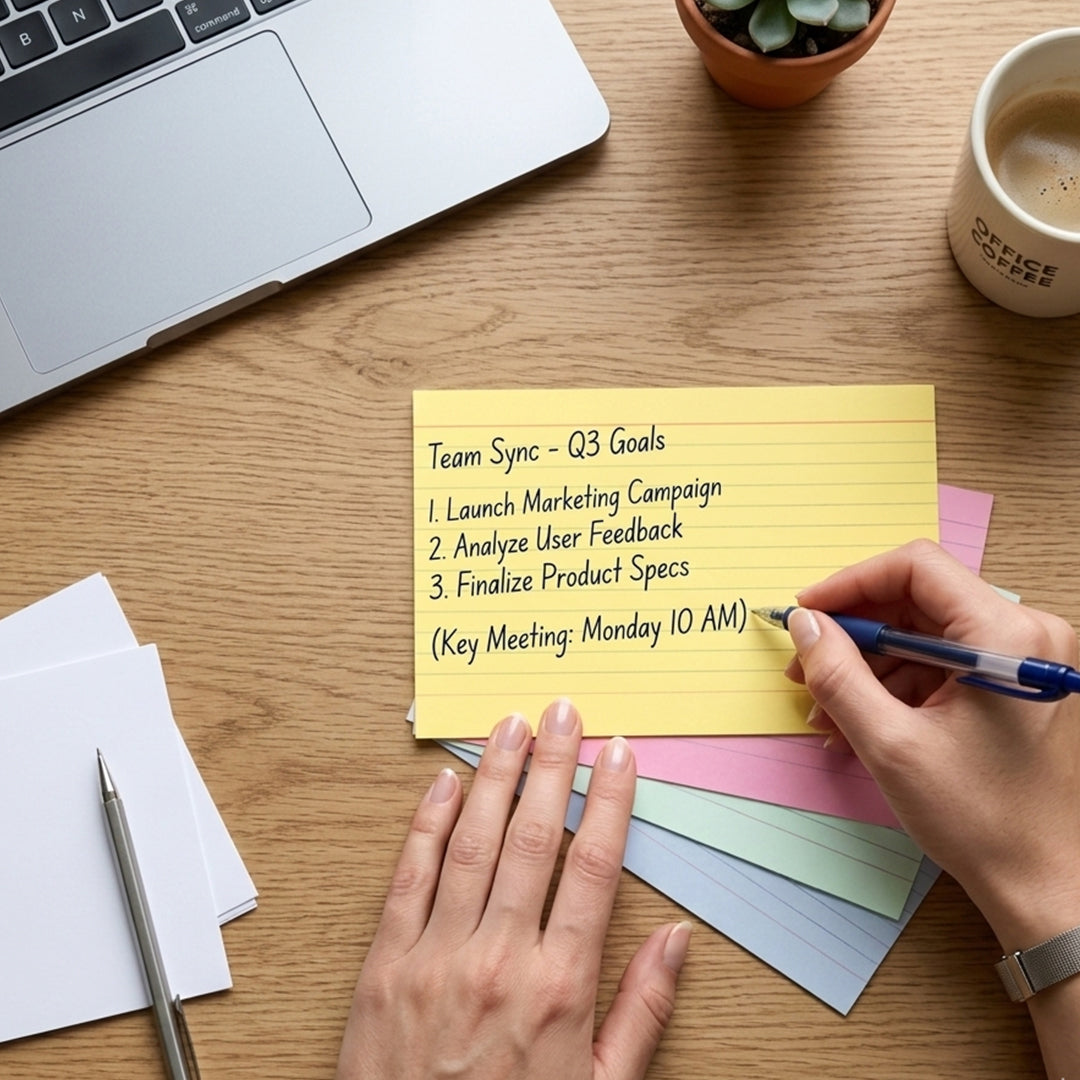 B
N
⌘
command
OFFICE
COFFEE
Team Sync - Q3 Goals
1. Launch Marketing Campaign
2. Analyze User Feedback
3. Finalize Product Specs
(Key Meeting: Monday 10 AM)